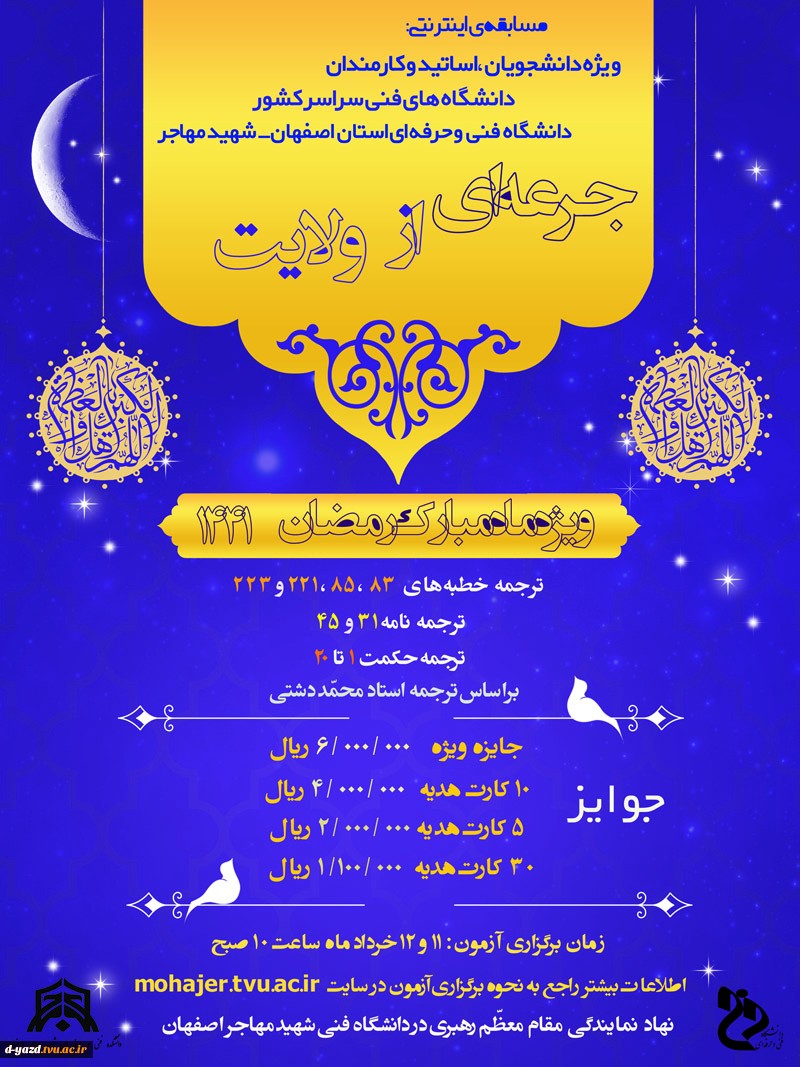 مسابقه‌ی اینترنتی:
ویژه دانشجویان، اساتید و کارمندان
دانشگاه های فنی سراسر کشور
دانشگاه فنی و حرفه ای استان اصفهان_ شهید مهاجر
جرعه‌ای از ولایت
اللهم اهل الکبریاء والعظمة
اللهم اهل الکبریاء والعظمة
ویژه ماه مبارک رمضان ۱۴۴۱
ترجمه خطبه های ۸۳ ،۸۵ ،۲۲۱ و ۲۲۳
ترجمه نامه ۳۱ و ۴۵
ترجمه حکمت ۱ تا ۲۰
براساس ترجمه استاد محمّد دشتی
جوایز
جایزه ویژه ۶/۰۰۰/۰۰۰ ریال
۱۰ کارت هدیه ۴/۰۰۰/۰۰۰ ریال
۵ کارت هدیه ۲/۰۰۰/۰۰۰ ریال
۳۰ کارت هدیه ۱/۱۰۰/۰۰۰ ریال
زمان برگزاری آزمون: ۱۱ و ۱۲ خرداد ماه ساعت ۱۰ صبح
اطلاعات بیشتر راجع به نحوه برگزاری آزمون در سایت mohajer.tvu.ac.ir
نهاد نمایندگی مقام معظّم رهبری در دانشگاه فنی شهید مهاجر اصفهان
دانشگاه
فنی و حرفه‌ای
d-yazd.tvu.ac.ir